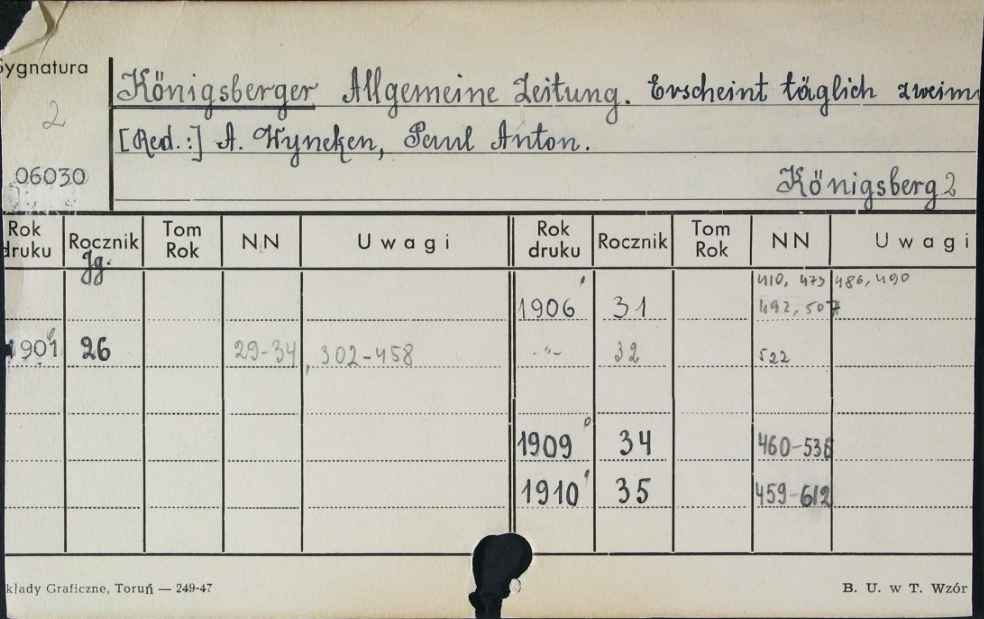 Sygnatura
2
06030
Königsberger Allgemeine Zeitung. Erscheint täglich zweim
[Red.:] A. Wyneken, Paul Anton.
Königsberg 2
Rok druku Rocznik Tom Rok NN Uwagi Rok druku Rocznik Tom Rok NN Uwagi
Jg.
410, 473 486, 490
1906 31 492, 507
1901 26 29-34, 302-458 -"- 32 522
1909 34 460-538
1910 35 459-612
kłady Graficzne, Toruń — 249-47 B. U. w T. Wzór